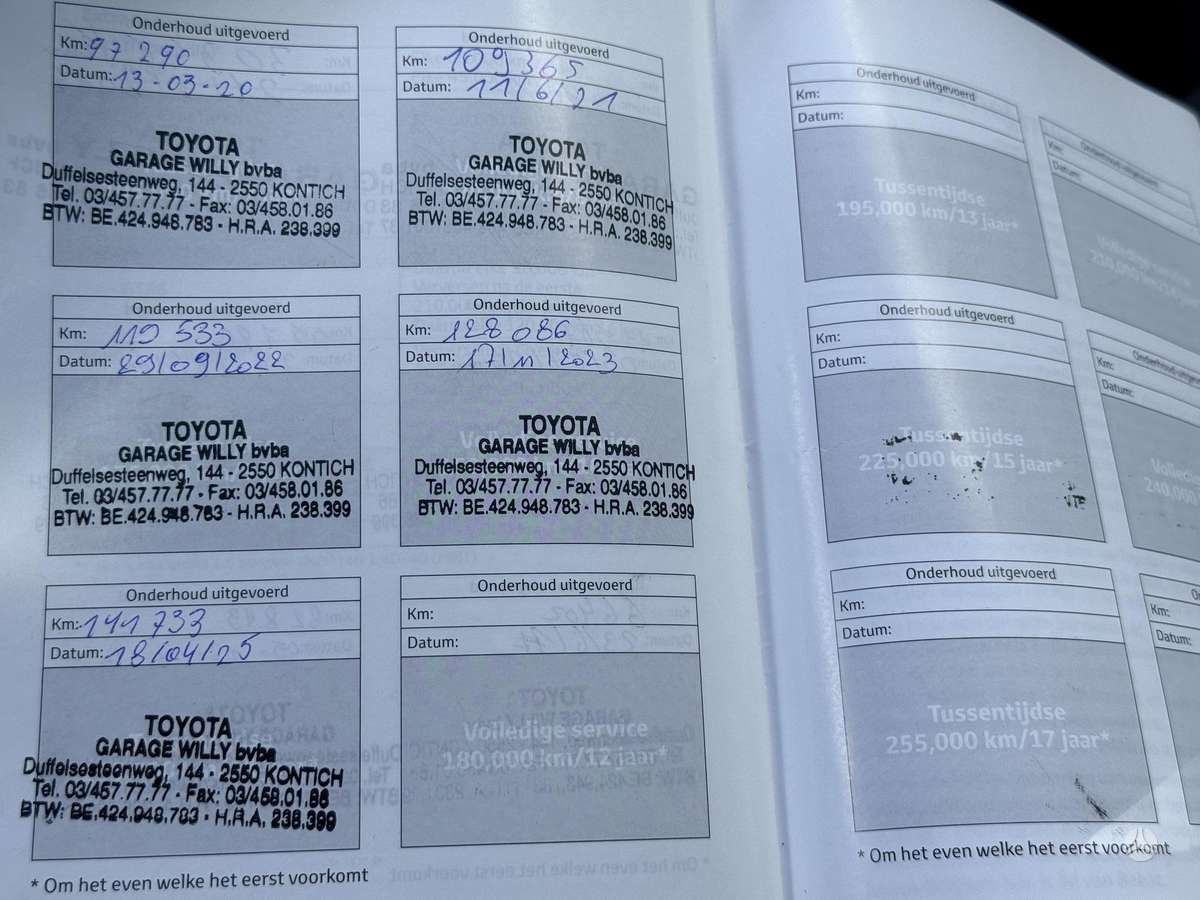 Onderhoud uitgevoerd
Km: 97 290
Datum: 13-03-20
TOYOTA
GARAGE WILLY bvba
Duffelsesteenweg, 144 - 2550 KONTICH
Tel. 03/457.77.77 - Fax: 03/458.01.86
BTW: BE.424.948.783 - H.R.A. 238.399
Onderhoud uitgevoerd
Km: 109365
Datum: 11/6/21
TOYOTA
GARAGE WILLY bvba
Duffelsesteenweg, 144 - 2550 KONTICH
Tel. 03/457.77.77 - Fax: 03/458.01.86
BTW: BE.424.948.783 - H.R.A. 238.399
Onderhoud uitgevoerd
Km: 119 533
Datum: 29/09/2022
TOYOTA
GARAGE WILLY bvba
Duffelsesteenweg, 144 - 2550 KONTICH
Tel. 03/457.77.77 - Fax: 03/458.01.86
BTW: BE.424.948.783 - H.R.A. 238.399
Onderhoud uitgevoerd
Km: 128 086
Datum: 17/11/2023
TOYOTA
GARAGE WILLY bvba
Duffelsesteenweg, 144 - 2550 KONTICH
Tel. 03/457.77.77 - Fax: 03/458.01.86
BTW: BE.424.948.783 - H.R.A. 238.399
Onderhoud uitgevoerd
Km: 141 733
Datum: 18/04/25
TOYOTA
GARAGE WILLY bvba
Duffelsesteenweg, 144 - 2550 KONTICH
Tel. 03/457.77.77 - Fax: 03/458.01.86
BTW: BE.424.948.783 - H.R.A. 238.399
Onderhoud uitgevoerd
Km:
Datum:
Volledige service
180,000 km/12 jaar*
* Om het even welke het eerst voorkomt
Onderhoud uitgevoerd
Km:
Datum:
Tussentijdse
195,000 km/13 jaar*
Onderhoud uitgevoerd
Km:
Datum:
Onderhoud uitgevoerd
Km:
Datum:
Tussentijdse
225,000 km/15 jaar*
Onderhoud uitgevoerd
Km:
Datum:
240,000
Onderhoud uitgevoerd
Km:
Datum:
Tussentijdse
255,000 km/17 jaar*
Km:
Datum:
* Om het even welke het eerst voorkomt